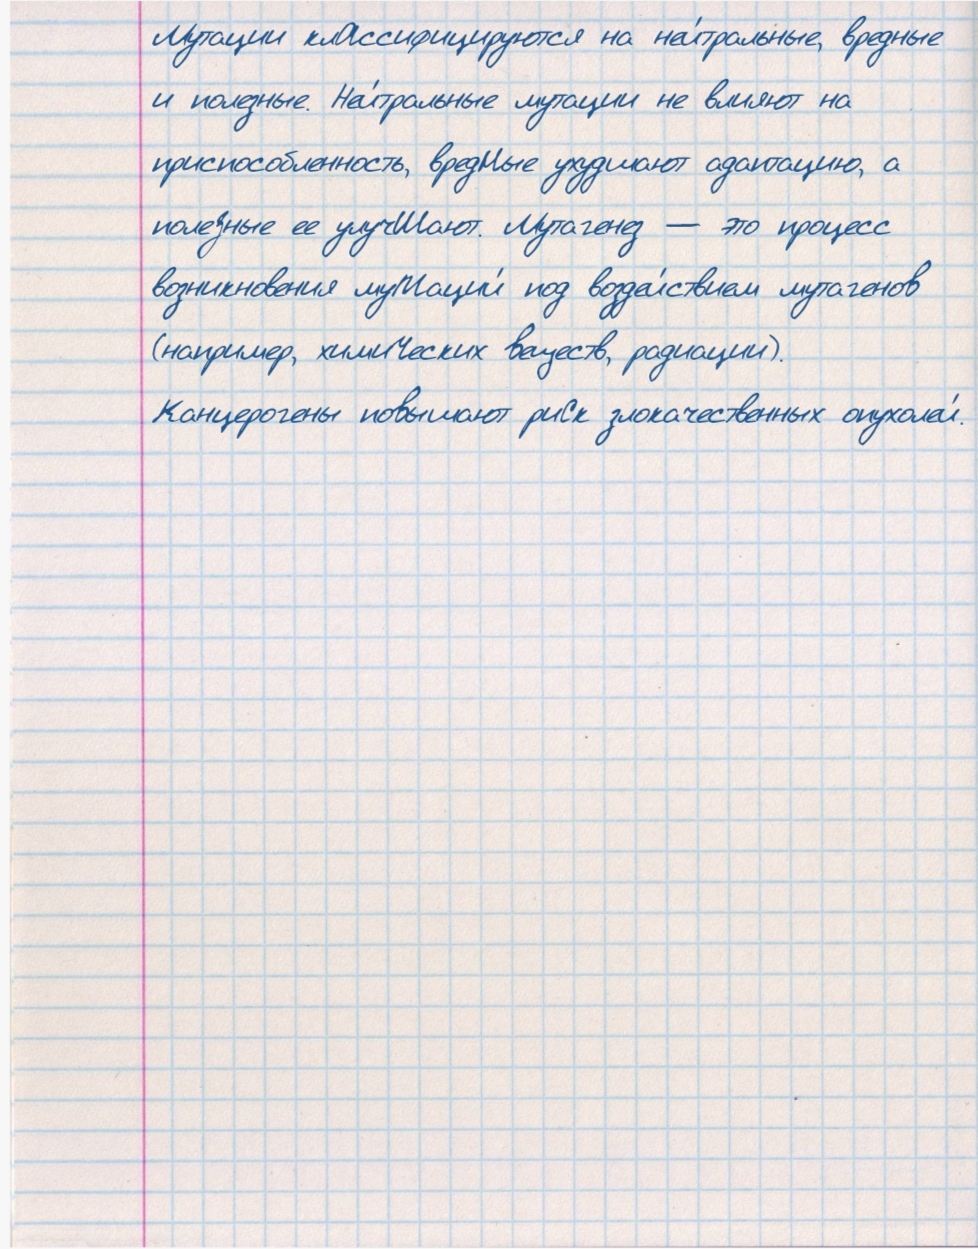 Мутации классифицируются на нейтральные, вредные
и полезные. Нейтральные мутации не влияют на
приспособленность, вредные ухудшают адаптацию, а
полезные ее улучшают. Мутагенез — это процесс
возникновения мутаций под воздействием мутагенов
(например, химических веществ, радиации).
Канцерогены повышают риск злокачественных опухолей.